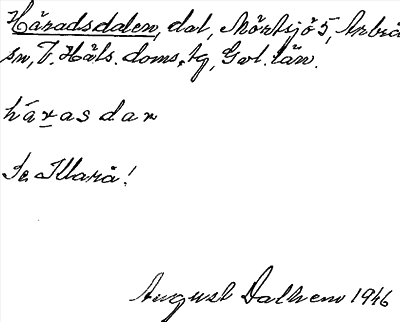 Häradsdalen, dal, Mörtsjö 5, Arbrå
sn, V. Häls. doms. tg, Gvl. län.
hä́ṟasdaṟ
Se Klarå!
August Dalhem 1946